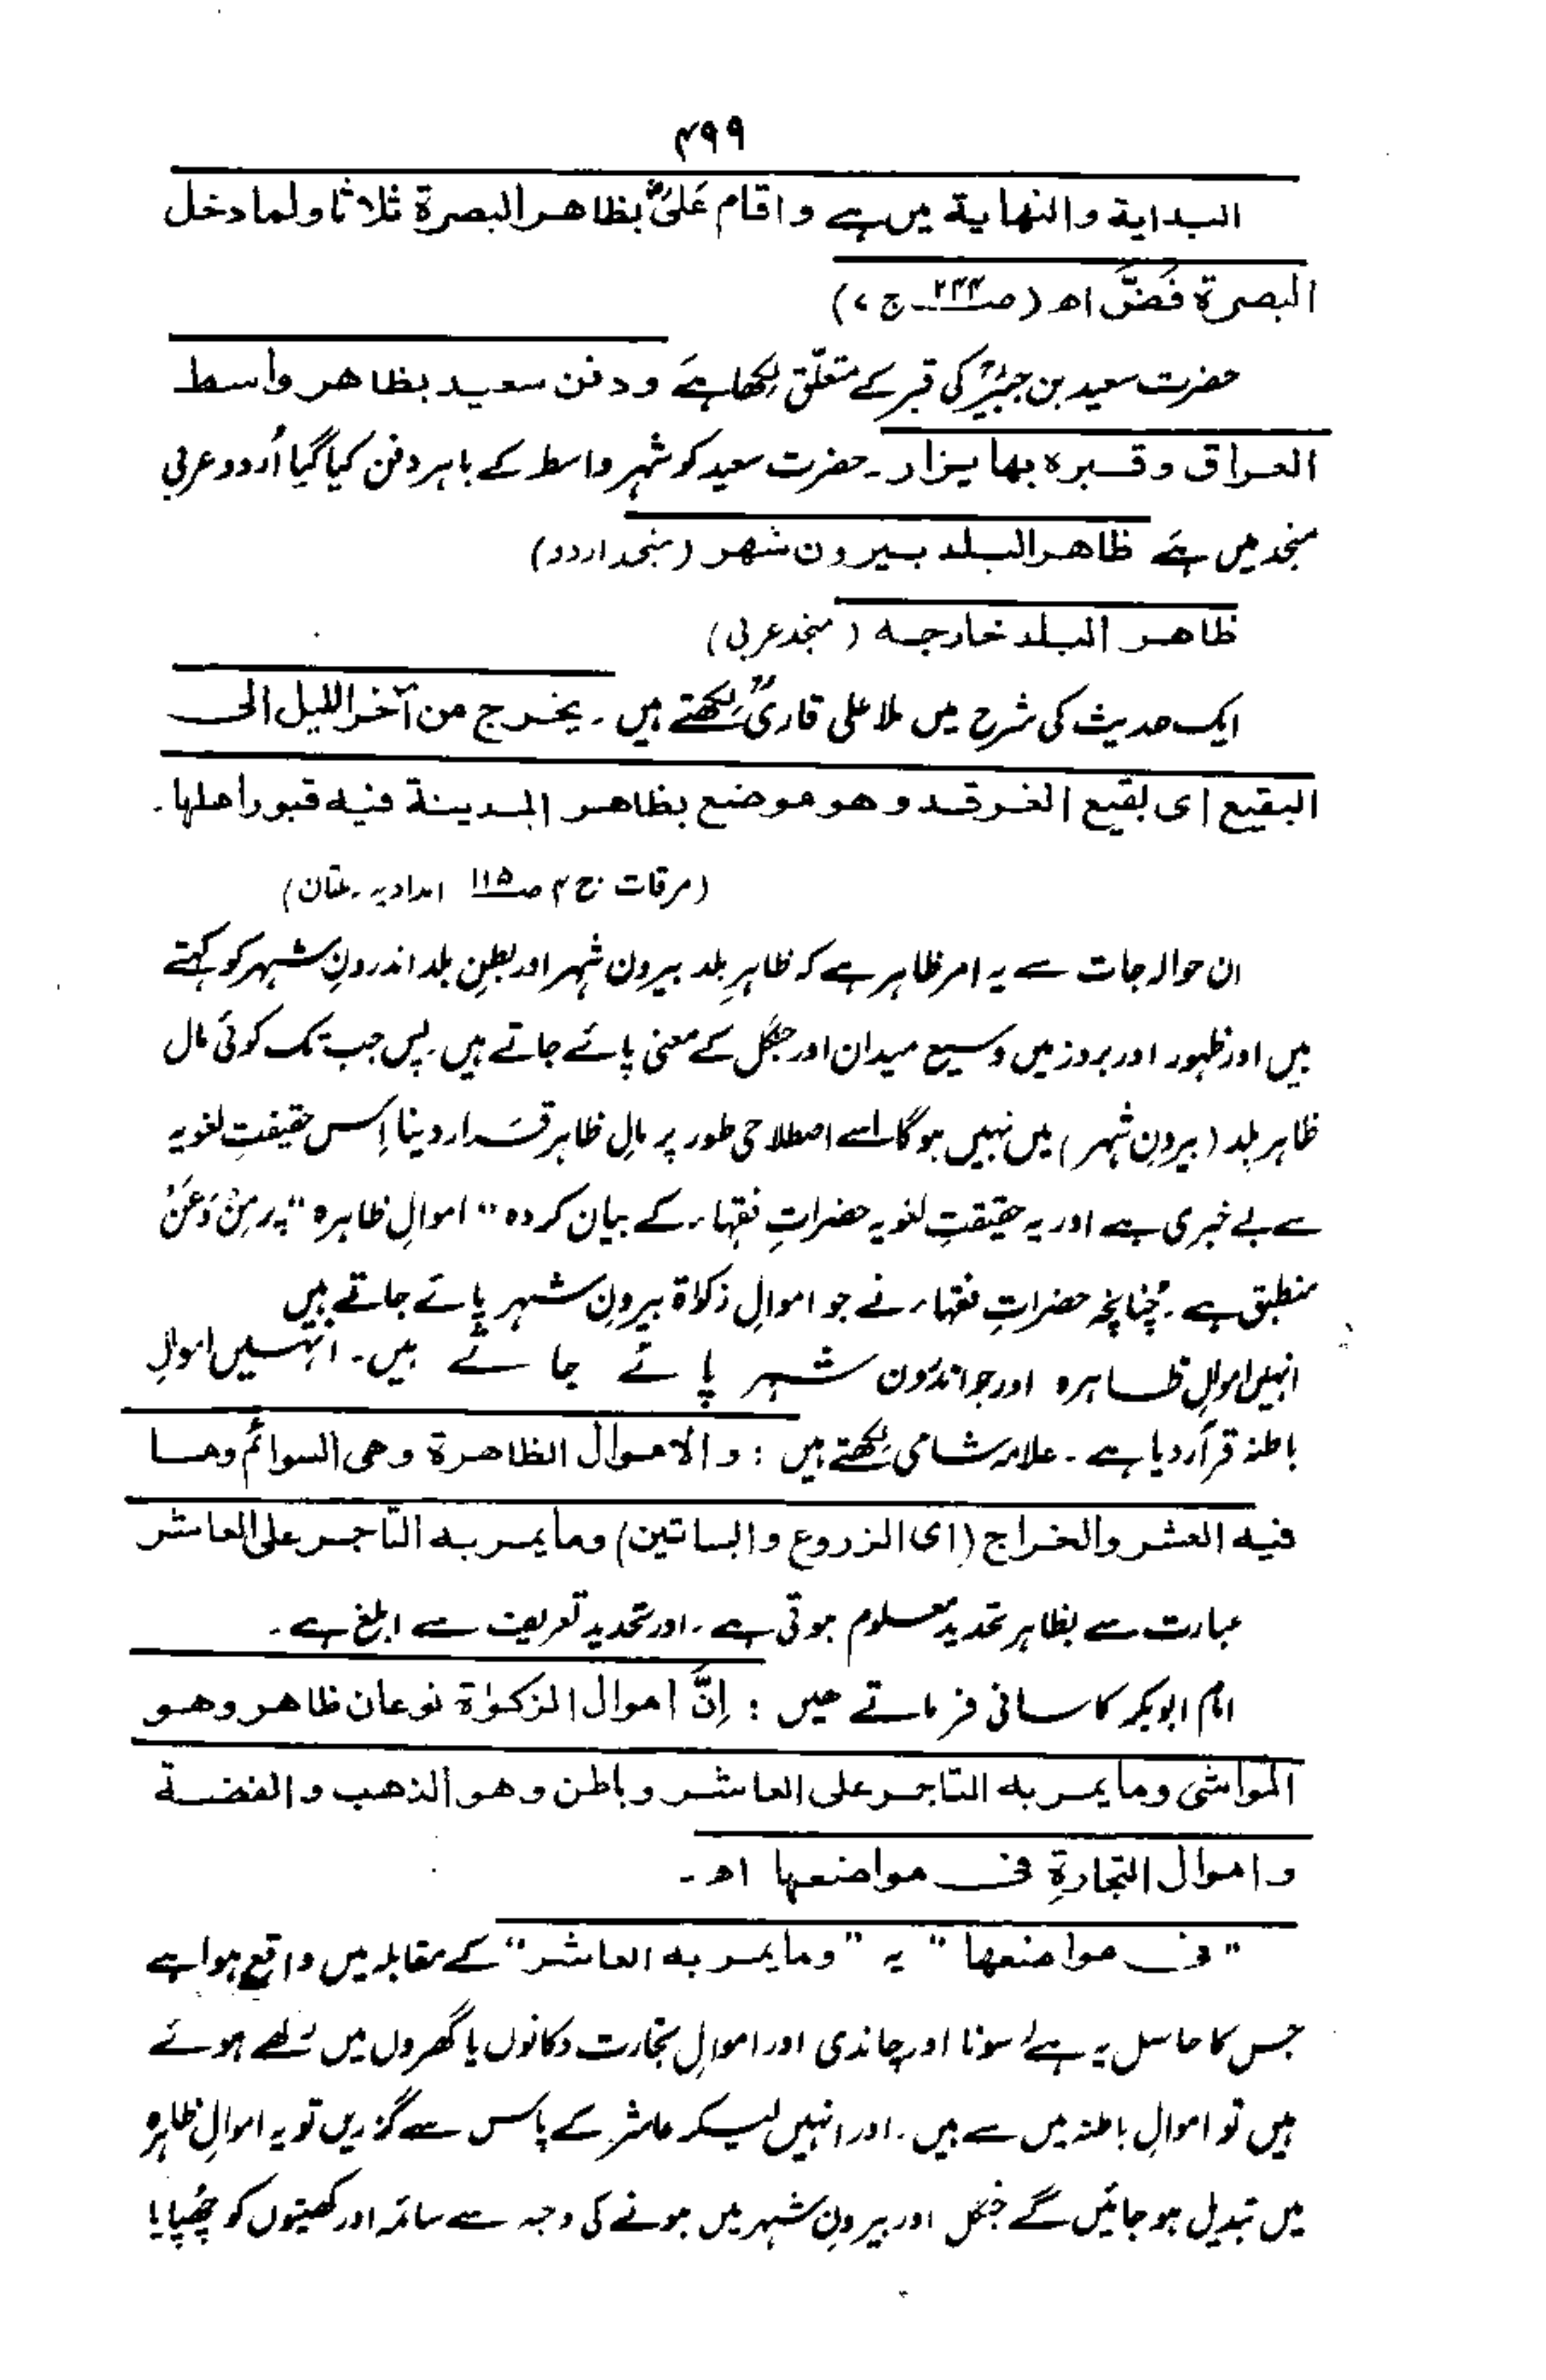 ۴۹۹
البدایة والنہایة میں ہے واقام علیؓ بظاھر البصرة ثلاثا ولما دخل
البصرة فَضَّ اھ (صـ۲۴۴ ج ۷)
حضرت سعید بن جبیرؓ کی قبر کے متعلّق لکھا ہے ودفن سعید بظاھر واسط
العراق وقبرہ بھا یزار۔ حضرت سعید کو شہر واسط کے باہر دفن کیا گیا اُردو عربی
منجد میں ہے ظاھر البلد بیرون شھر (منجد اردو)
ظاھر البلد خارجه (منجد عربی)
ایک حدیث کی شرح میں ملا علی قاریؒ لکھتے ہیں۔ یخرج من آخر اللیل الی
البقیع ای بقیع الغرقد وھو موضع بظاھر المدینة فیه قبور اھلھا۔
(مرقات ج ۴ صـ۱۱۵ امدادیہ۔ ملتان)
ان حوالہ جات سے یہ امر ظاہر ہے کہ ظاہرِ بلد بیرون شہر اور بطنِ بلد اندرونِ شہر کو کہتے
ہیں اور ظہور اور بروز میں وسیع میدان اور جنگل کے معنی پائے جاتے ہیں۔ پس جب تک کوئی مال
ظاہر بلد (بیرون شہر) میں نہیں ہوگا اسے اصطلاحی طور پر مالِ ظاہر قرار دینا اِس حقیقتِ لغویہ
سے بے خبری ہے اور یہ حقیقتِ لغویہ حضراتِ فقہاء کے بیان کردہ "اموالِ ظاہرہ" پر مِنْ وَعَنْ
منطبق ہے۔ چُنانچہ حضراتِ فقہاء نے جو اموالِ زکوٰة بیرونِ شہر پائے جاتے ہیں
انہیں اموالِ ظاہرہ اور جو اندرون شہر پائے جاتے ہیں۔ انہیں اموالِ
باطنہ قرار دیا ہے۔ علامہ شامی لکھتے ہیں: والاموال الظاھرة وھی السوائم وما
فیه العشر والخراج (ای الزروع والبساتین) وما یمر به التاجر علی العاشر
عبارت سے بظاہر تحدید معلوم ہوتی ہے۔ اور تحدید تعریف سے ابلغ ہے۔
امام ابوبکر کاسانی فرماتے ھیں: اِنَّ اموال الزکوٰة نوعان ظاھر وھو
المواشی وما یمر به التاجر علی العاشر وباطن وھو الذھب والفضة
واموال التجارةِ فی مواضعھا اھ۔
"فی مواضعھا" یہ "وما یمر به العاشر" کے مقابلہ میں واقع ہوا ہے
جس کا حاصل یہ ہے سونا اور چاندی اور اموالِ تجارت دکانوں یا گھروں میں رکھے ہوئے
ہیں تو اموالِ باطنہ میں سے ہیں۔ اور انہیں لیکر عاشر کے پاس سے گزریں تو یہ اموالِ ظاہرہ
میں تبدیل ہو جائیں گے جنگل اور بیرونِ شہر میں ہونے کی وجہ سے سائمہ اور کھیتوں کو چُھپایا